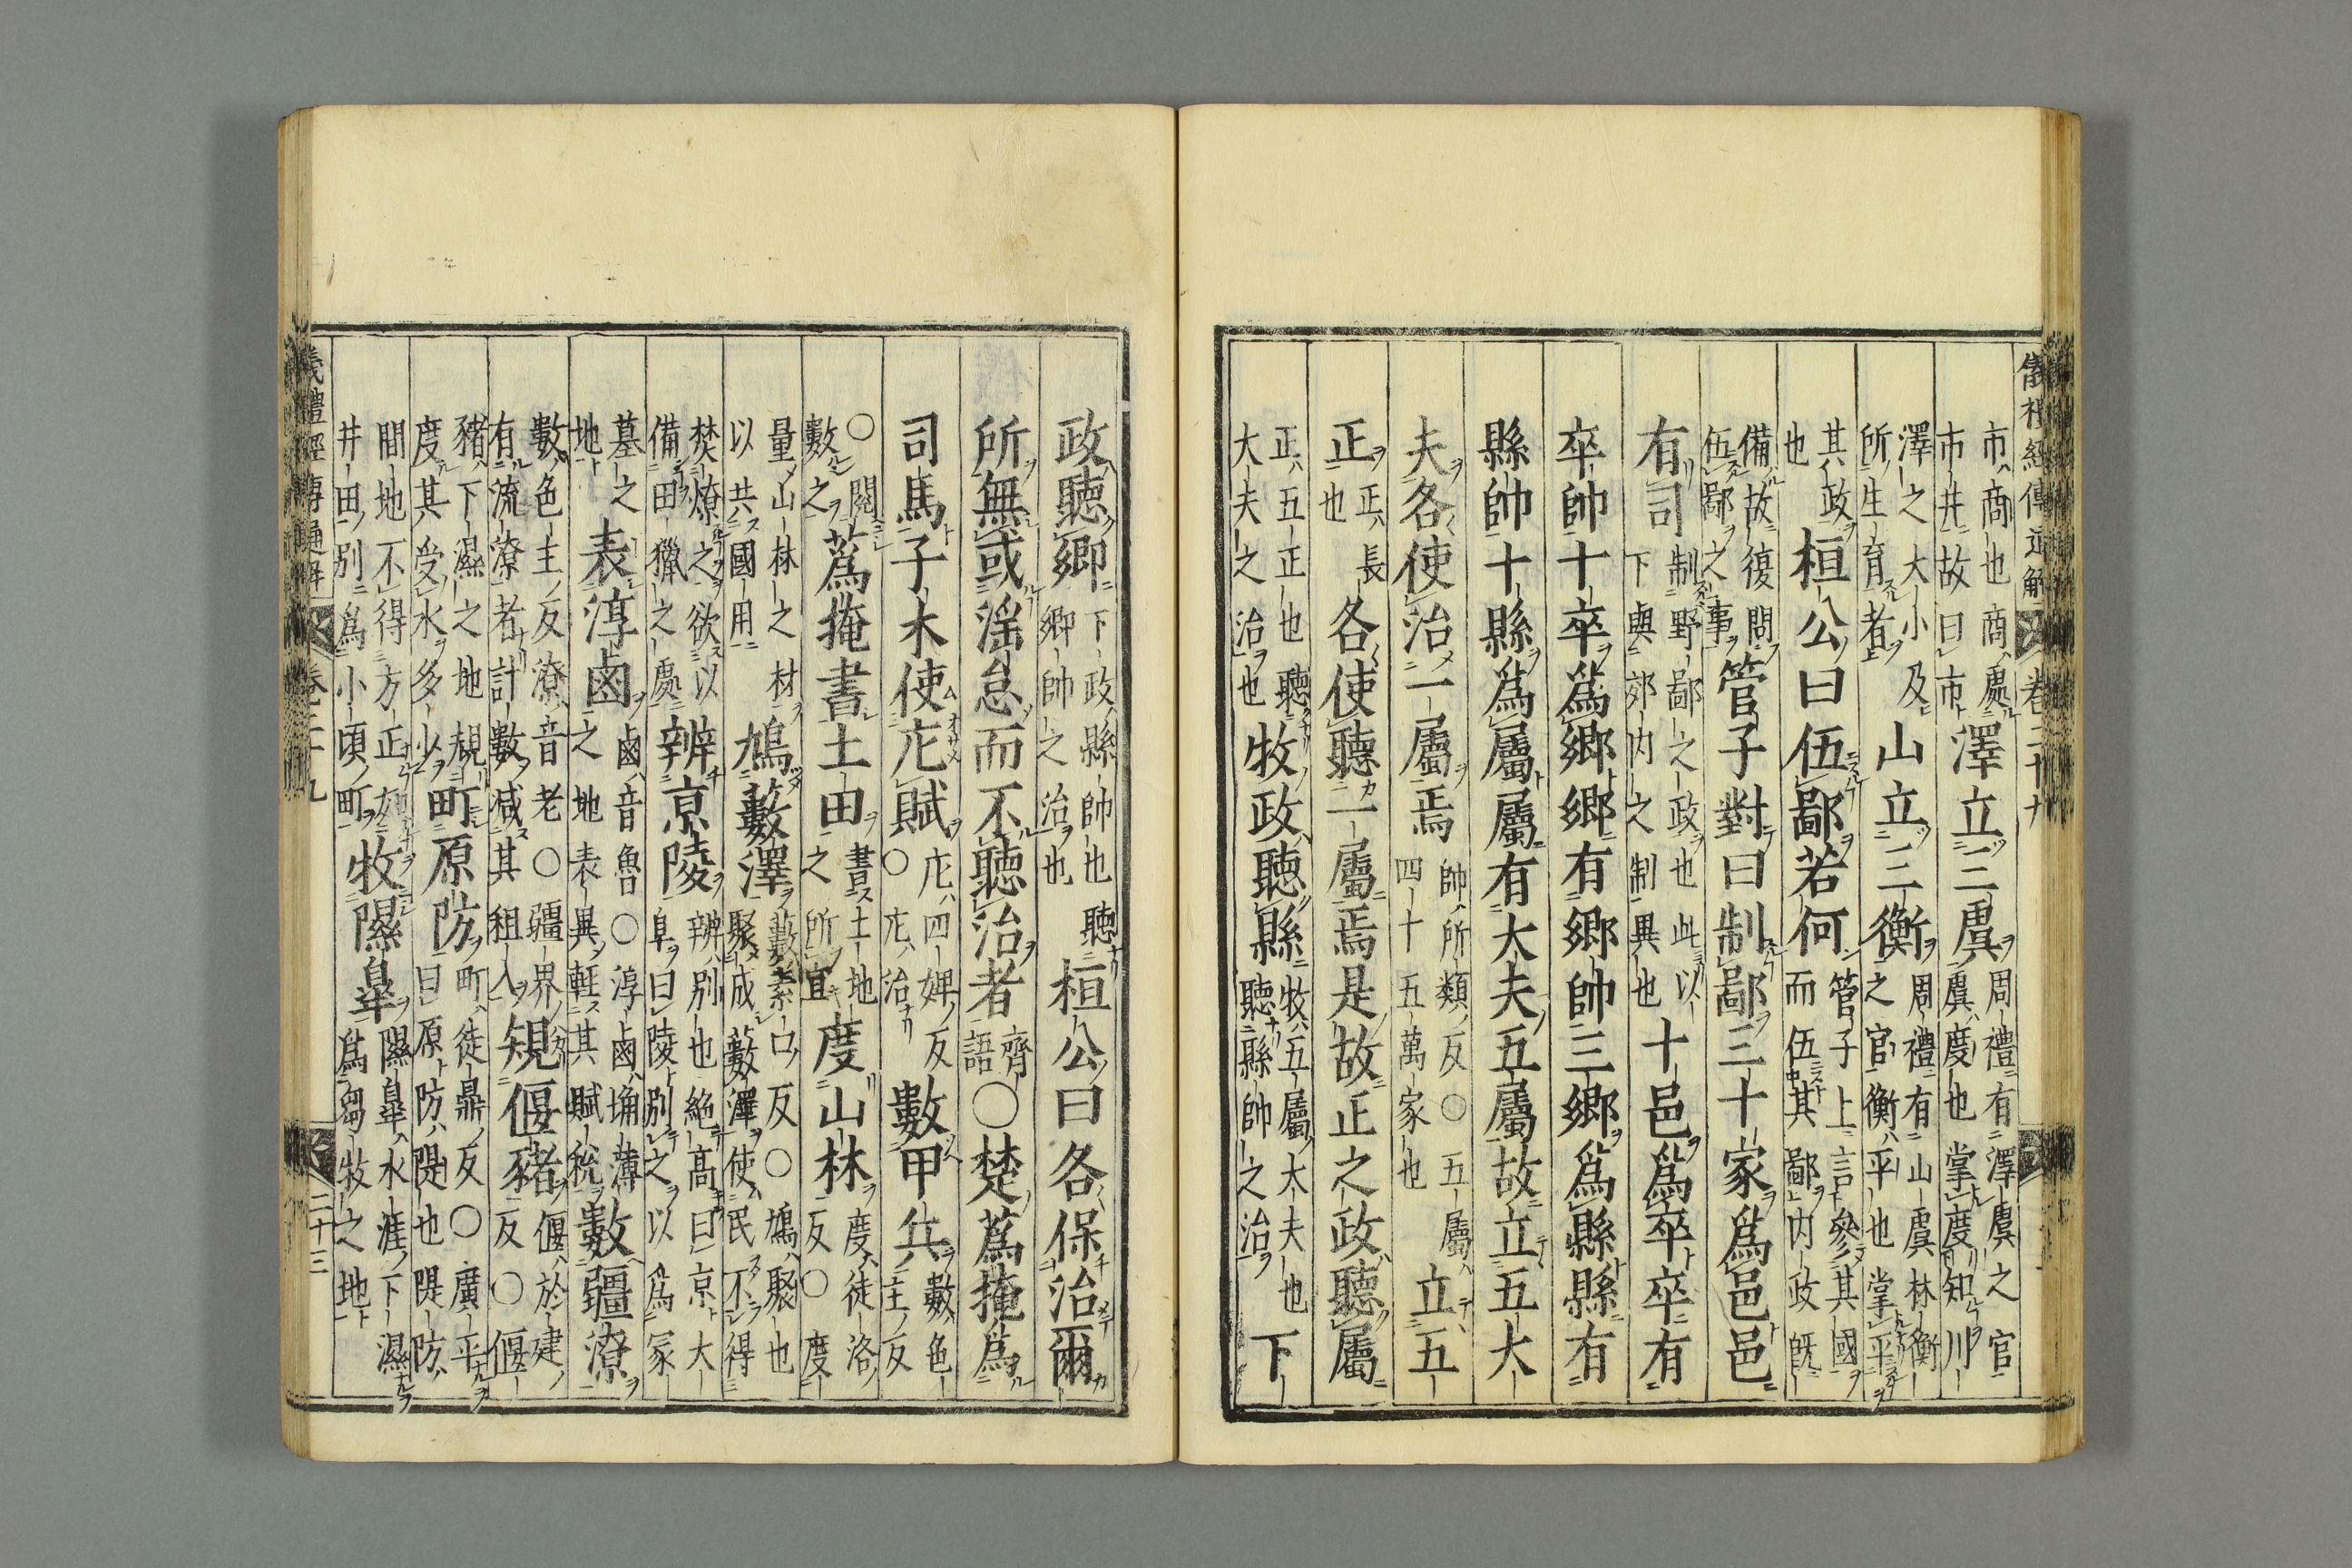 儀禮經傳通解 卷二十九
市商也商處
市井故曰市
澤立三虞
周禮有澤虞之官
虞度也掌度知川
澤之大小及
所生育者
山立三衡
周禮有山虞林衡
之官衡平也掌平
其政
也
桓公曰伍鄙若何
管子上言參其國
而伍其鄙内政既
備故復問
伍鄙之事
管子對曰制鄙三十家爲邑邑
有司
制野鄙之政也此以
下與郊内之制異也
十邑爲卒卒有
卒帥十卒爲鄉鄉有鄉帥三鄉爲縣縣有
縣帥十縣爲屬屬有大夫五屬故立五大
夫各使治一屬焉
帥所類反○五屬
四十五萬家也
立五
正
正長
也
各使聽一屬焉是故正之政聽屬
正五正也聽
大夫之治也
牧政聽縣
牧五屬大夫也
聽縣帥之治
下
政聽鄉
下政縣帥也聽
鄉帥之治也
桓公曰各保治爾
所無或淫怠而不聽治者
齊
語
○楚蔿掩爲
司馬子木使庀賦
庀四婢反
○庀治
數甲兵
數色
主反
○閱
數之
蔿掩書土田
書土地
之所宜
度山林
度徒洛
反○度
量山林之材
以共國用
鳩藪澤
藪素口反○鳩聚也
聚成藪澤使民不得
焚燎之欲以
備田獵之處
辨京陵
辨別也絶高曰京大
阜曰陵別之以爲冢
墓之
地
表淳鹵
鹵音魯○淳鹵埆薄
之地表異輕其賦稅
數疆潦
數色主反潦音老○疆界
有流潦者計數減其租入
規偃豬
偃於建
反○偃
豬下濕之地規
度其受水多少
町原防
町徒鼎反○廣平
曰原防隄也隄防
間地不得方正如
井田別爲小頃町
牧隰皐
隰皐水涯下濕
爲芻牧之地
儀禮經傳通解 卷二十九 二十三